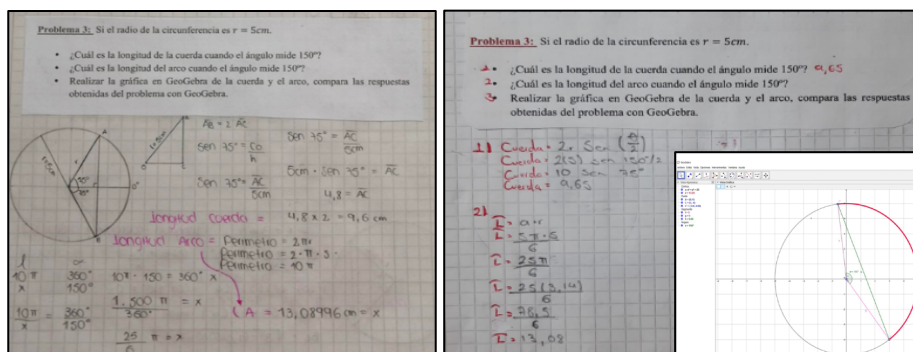 Problema 3: Si el radio de la circunferencia es r = 5cm.
• ¿Cuál es la longitud de la cuerda cuando el ángulo mide 150º?
• ¿Cuál es la longitud del arco cuando el ángulo mide 150º?
• Realizar la gráfica en GeoGebra de la cuerda y el arco, compara las respuestas
obtenidas del problema con GeoGebra.
AB = 2 AC
sen 75° = CO/h
sen 75° = AC/5cm
sen 75° = AC/5cm
5cm · sen 75° = AC
4,8 = AC
longitud cuerda = 4,8 x 2 = 9,6 cm
longitud Arco = Perimetro = 2πr
Perimetro = 2·π·5
Perimetro = 10π
10π 360°
x 150°
10π · 150 = 360° x
10π/x = 360°/150°
1.500 π/360° = x
25/6 π = x
A = 13,08996 cm = x
Problema 3: Si el radio de la circunferencia es r = 5cm.
1• ¿Cuál es la longitud de la cuerda cuando el ángulo mide 150º? 9,65
2• ¿Cuál es la longitud del arco cuando el ángulo mide 150º?
3• Realizar la gráfica en GeoGebra de la cuerda y el arco, compara las respuestas
obtenidas del problema con GeoGebra.
1) Cuerda = 2r Sen
Cuerda = 2(5) sen 150°/2
Cuerda = 10 sen 75°
Cuerda = 9,65
2)
L = a·r
L = 5π·5/6
L = 25π/6
L = 25(3,14)/6
L = 78,5/6
L = 13,08